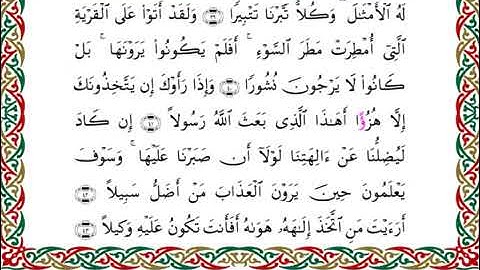 لَهُ ٱلْأَمْثَـٰلَ ۖ وَكُلًّا تَبَّرْنَا تَتْبِيرًا ﴿٣٩﴾ وَلَقَدْ أَتَوْا۟ عَلَى ٱلْقَرْيَةِ
ٱلَّتِىٓ أُمْطِرَتْ مَطَرَ ٱلسَّوْءِ ۚ أَفَلَمْ يَكُونُوا۟ يَرَوْنَهَا ۚ بَلْ
كَانُوا۟ لَا يَرْجُونَ نُشُورًا ﴿٤٠﴾ وَإِذَا رَأَوْكَ إِن يَتَّخِذُونَكَ
إِلَّا هُزُؤًا أَهَـٰذَا ٱلَّذِى بَعَثَ ٱللَّهُ رَسُولًا ﴿٤١﴾ إِن كَادَ
لَيُضِلُّنَا عَنْ ءَالِهَتِنَا لَوْلَآ أَن صَبَرْنَا عَلَيْهَا ۚ وَسَوْفَ
يَعْلَمُونَ حِينَ يَرَوْنَ ٱلْعَذَابَ مَنْ أَضَلُّ سَبِيلًا ﴿٤٢﴾
أَرَءَيْتَ مَنِ ٱتَّخَذَ إِلَـٰهَهُۥ هَوَىٰهُ أَفَأَنتَ تَكُونُ عَلَيْهِ وَكِيلًا ﴿٤٣﴾